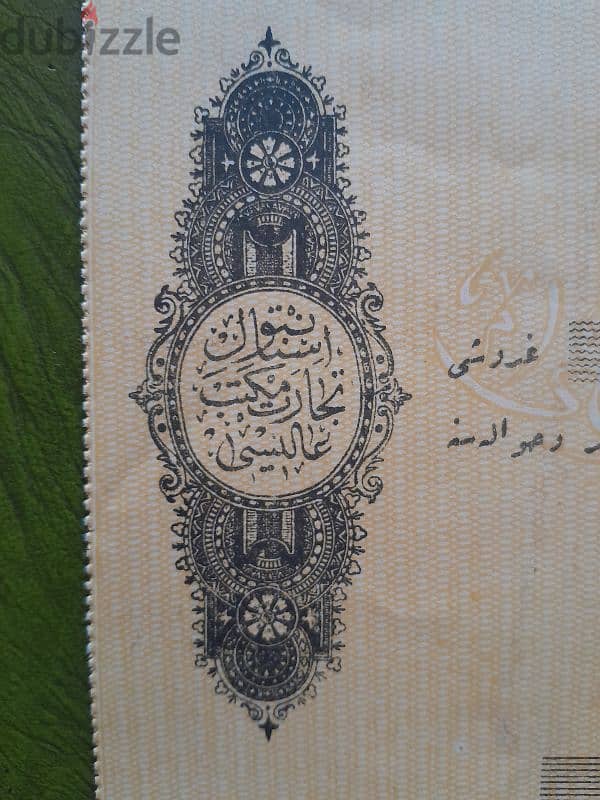 dubizzle
استانبول
تجارت مكتب
عاليسى
غروشى
وحواله سنه